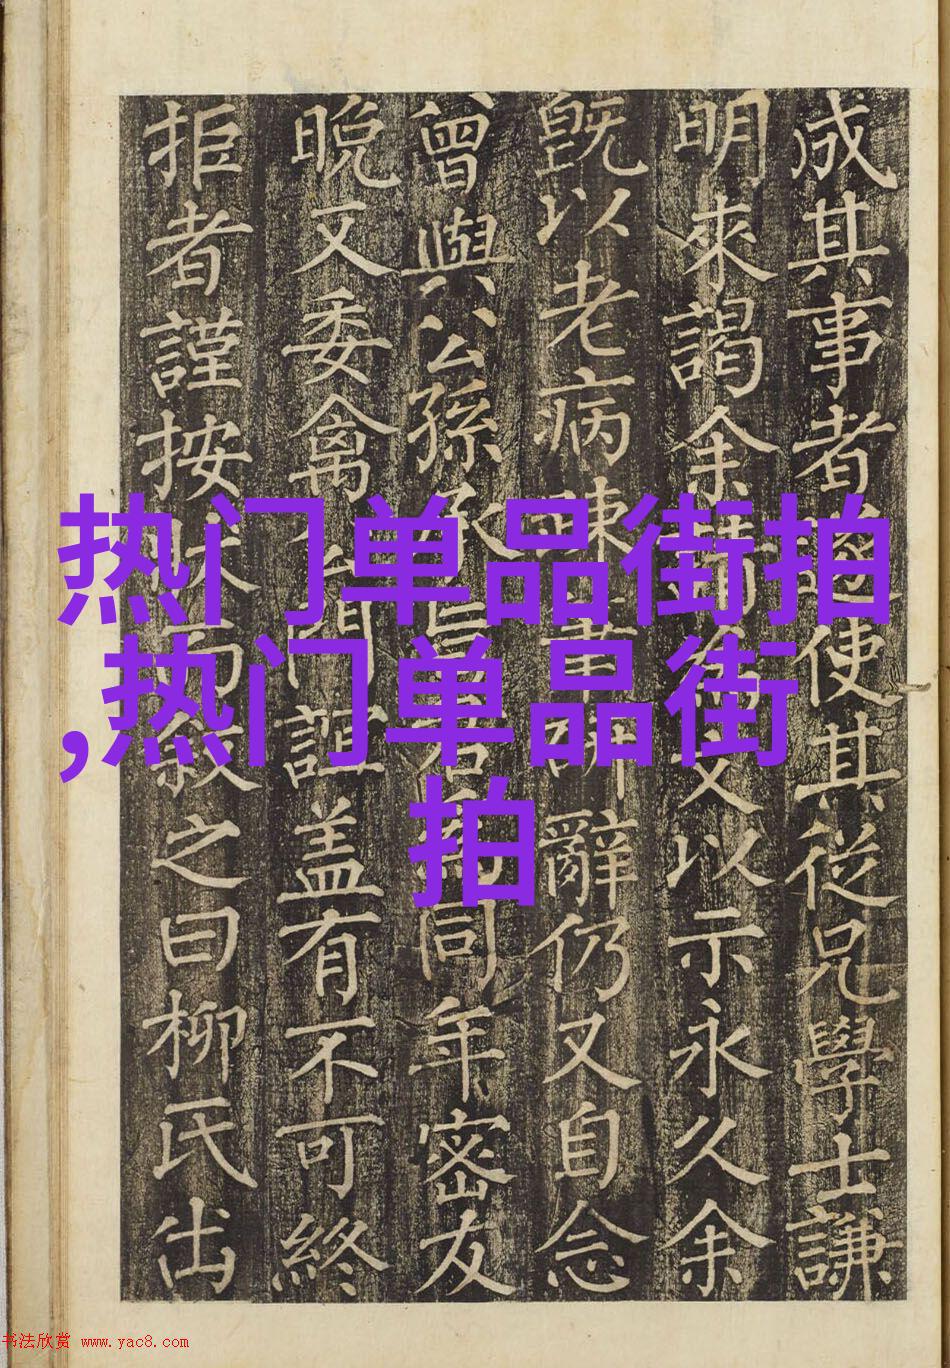 热门单品街拍
,热门单品街
拍
成其事者使其從兄學士謙
明來謁余請為文以示永久余
既以老病辭仍又自念
曾與公孫承旨君同年密友
晚又委禽門誼盖有不可終
拒者謹按狀而叙之曰柳氏出
书法欣赏 www.yac8.com